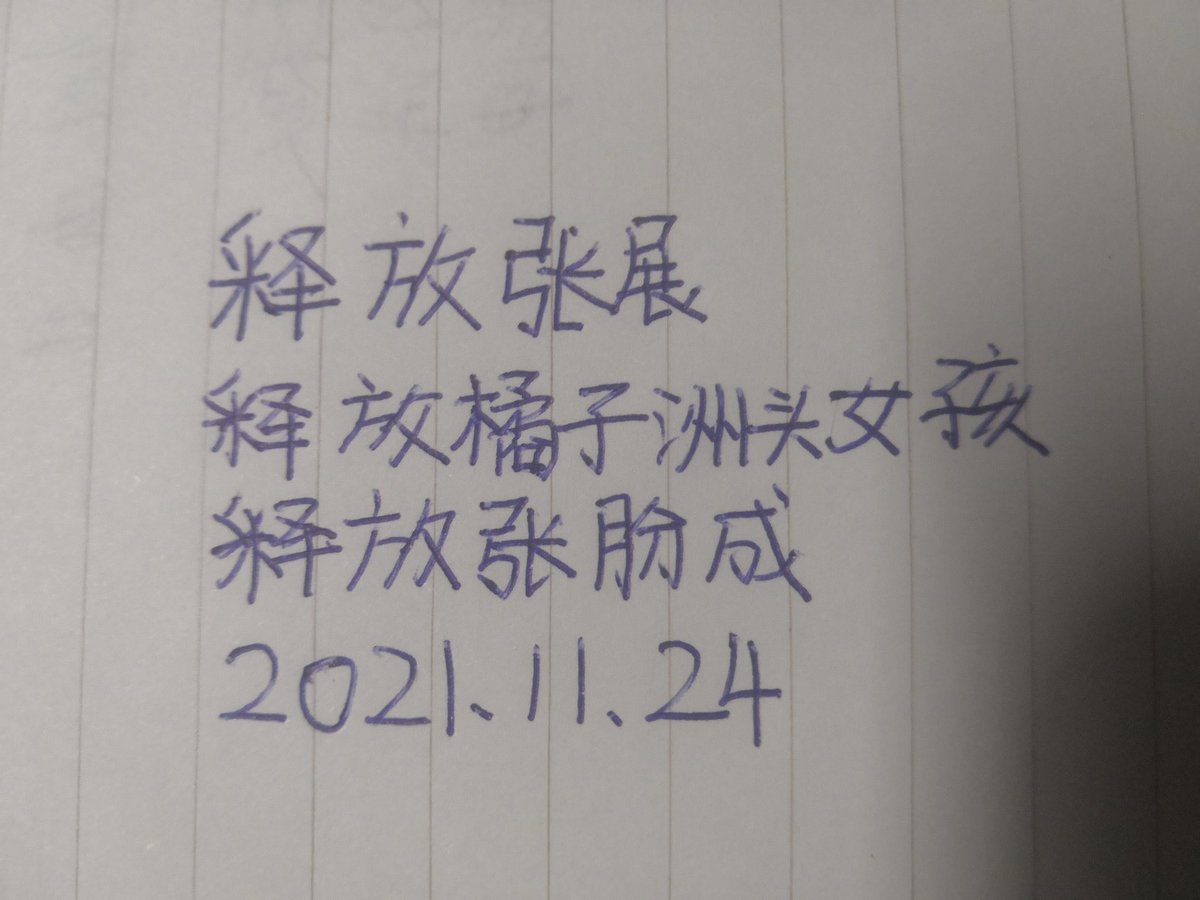 释放张展
释放橘子洲头女孩
释放张盼成
2021.11.24